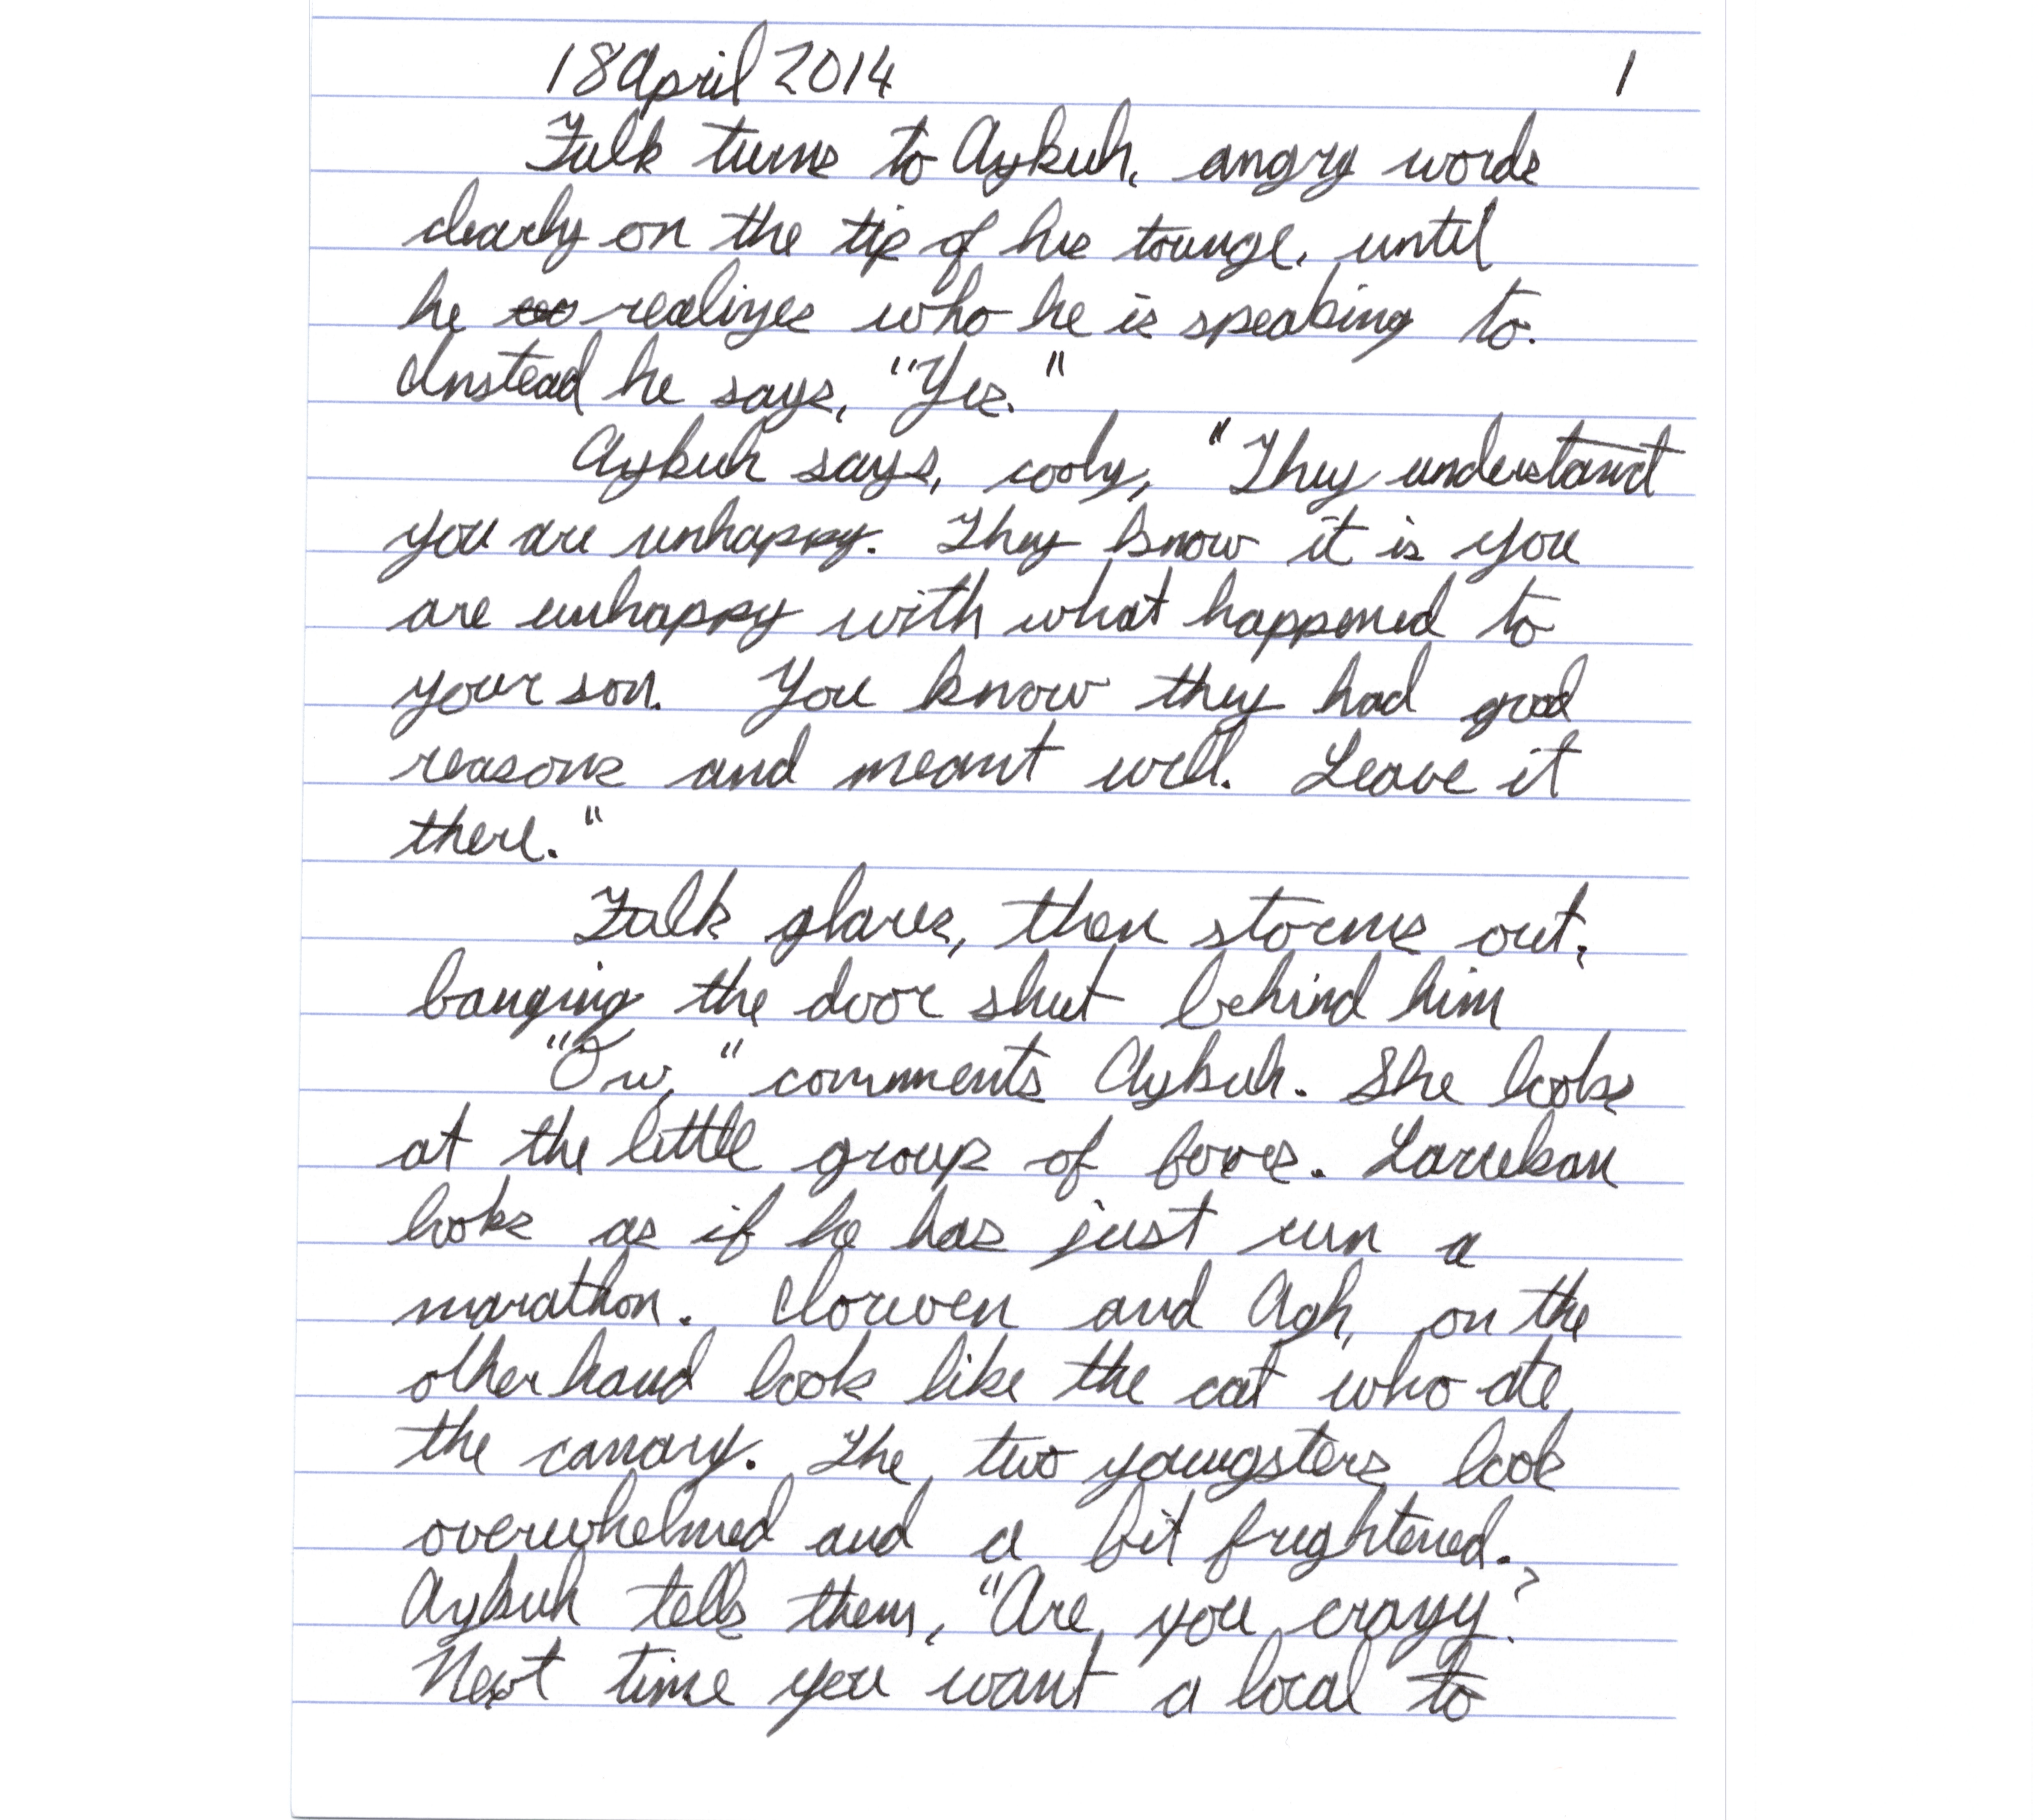 18 April 2014 1
Fulk turns to Aykuh, angry words
clearly on the tip of his tounge, until
he realizes who he is speaking to.
Instead he says, "Yes."
Aykuh says, cooly, "They understand
you are unhappy. They know it is you
are unhappy with what happened to
your son. You know they had good
reasons and meant well. Leave it
there."
Fulk glares, then storms out,
banging the door shut behind him
"Ow," comments Aykuh. She looks
at the little group of fooes. Larrekan
looks as if he has just run a
marathon. Clorwen and Agh, on the
other hand look like the cat who ate
the canary. The two youngsters look
overwhelmed and a bit frightened.
Aykuh tells them, "Are you crazy?
Next time you want a local to